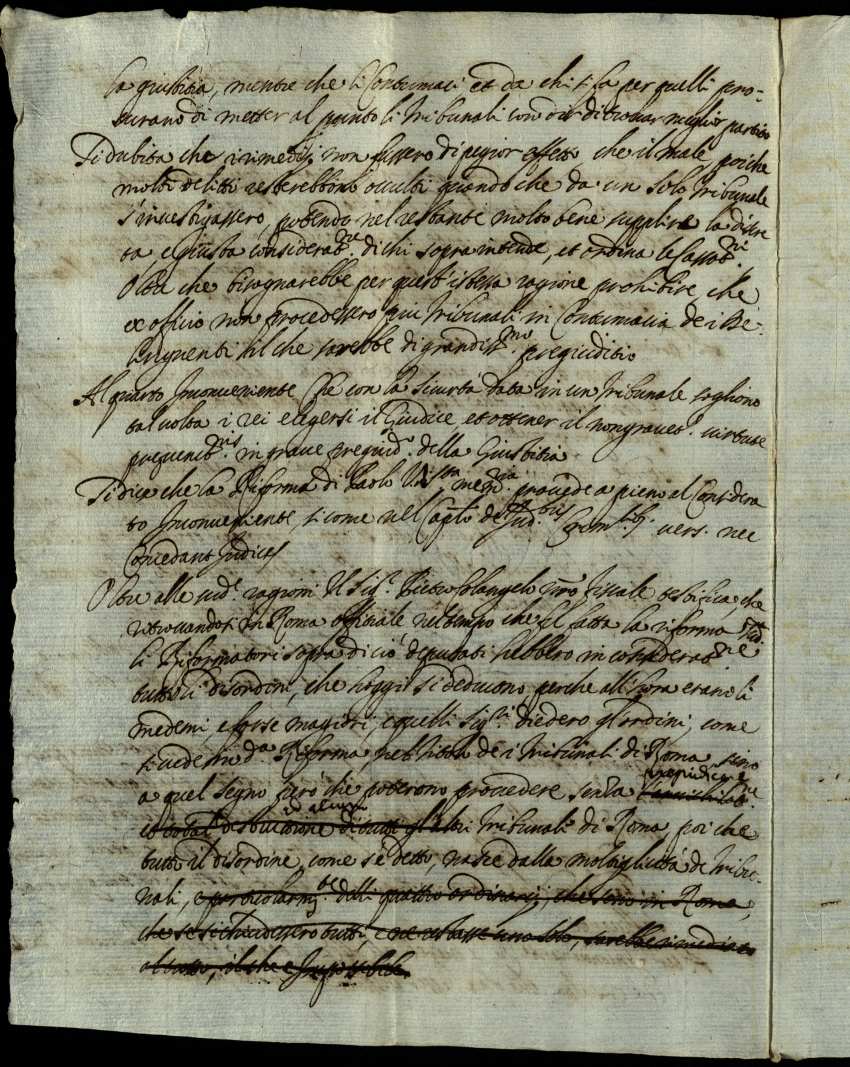 la giustitia, mentre che li Contumaci et da chi si fa per quelli pro-
curano di metter al punto li Tribunali con dir di trovar meglior partito
Si dubita che i rimedij non fussero di pegior effetto che il male, poiche
molti delitti resterebbono occulti quando che da un solo Tribunale
s'investigassero, potendo nel restante molto bene supplire la discre
ta e giusta considerat.ne di chi sopraintende, et ordina le
Oltra che bisognarebbe per quest'istessa ragione prohibire, che
ex officio non procedessero più Tribunali in Contumacia de i De-
linquenti il che sarebbe di grandiss.mo pregiuditio
Al quarto Inconveniente Che con la sicurtà data in un Tribunale sogliono
tal volta i rei elegersi il Giudice, et ottener il non gravet.r virtute
in grave pregiud.o della Giustitia
Si dice che la Riforma di Paolo V. mem.ria provede a pieno al Considera
to Inconveniente, si come nel Cap.lo de Jud.bus Crim.lib. vers. nec
Concedant Judices
Oltre alle sud.e ragioni Il Sig.r Pietro Colangelo fiscale testifica, che
ritrovandosi in Roma offitiale nel tempo che fu fatta la riforma
li Riformatori sopra di ciò deputati hebbero in considerat.ne
tutti li disordini, che hoggi si deducono, perche all'hora erano li
medemi e forse magiori, e quelli Sig.ri diedero gl'ordini, come
si vede in d.a Riforma nel titolo de i Tribunali di Roma, sino
a quel segno però che poterono procedere senza pregiudicare
ad alcuni
et total distruttione di tutti gl'altri Tribunali di Roma, poi che
tutto il disordine, come s'è detto, nasce dalla moltiplicità de Tribu-
nali, e particolarm.te delli quattro ordinarij, che sono in Roma,
che se si chiudessero tutti, e ne restasse uno solo, sarebbe rimediato
al tutto, il che è Impossibile.